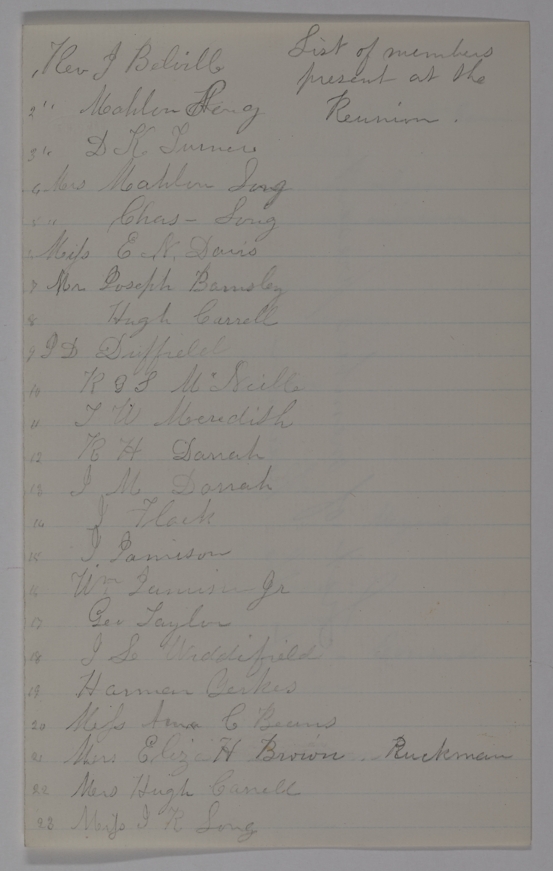 List of members
present at the
Reunion.
Rev J Belville
2 " Mahlon
3 " D K Turner
4 Mrs Mahlon Long
5 " Chas - Long
Miss E N. Davis
7 Mr Joseph Barnsley
8 Hugh Carrell
9 J D Duffield
10 R G S McNeille
11 T W Meredith
12 R H Darrah
13 J M Darrah
14 J Flack
15 J. Jamison
16 Wm Jamison Jr
17 Geo Taylor
18 J L Widdifield
19 Harman Yerkes
20 Miss Anna C Beans
21 Mrs Eliza H Brown. Ruckman
22 Mrs Hugh Carrell
23 Miss J K Long